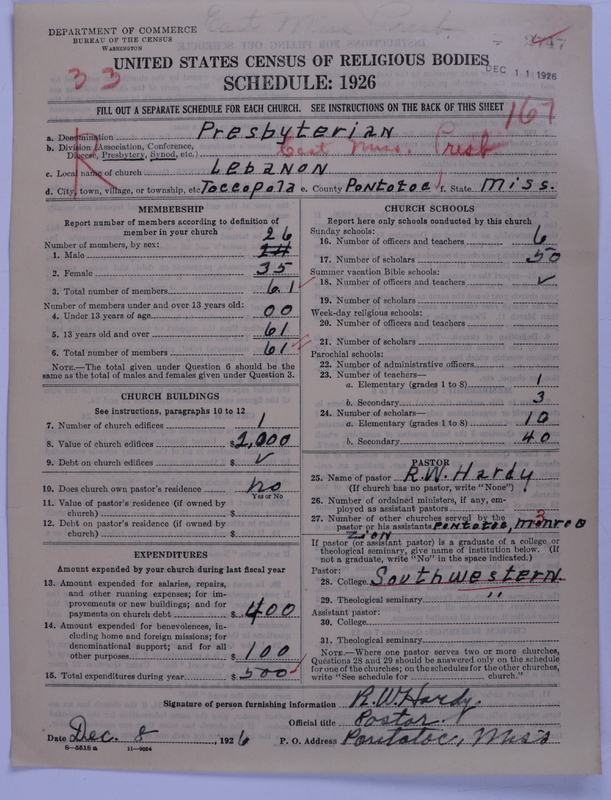 East Miss Presb.
DEPARTMENT OF COMMERCE
BUREAU OF THE CENSUS
WASHINGTON
UNITED STATES CENSUS OF RELIGIOUS BODIES
DEC 11 1926
33
SCHEDULE: 1926
FILL OUT A SEPARATE SCHEDULE FOR EACH CHURCH. SEE INSTRUCTIONS ON THE BACK OF THIS SHEET
167
R
a. Denomination Presbyterian
b. Division (Association, Conference, Diocese, Presbytery, Synod, etc.) East Miss. Presb
c. Local name of church Lebanon
d. City, town, village, or township, etc. Toccopola e. County Pontotoc f. State Miss.
MEMBERSHIP
Report number of members according to definition of
member in your church
Number of members, by sex:
26
1. Male
2. Female 35
3. Total number of members 61
Number of members under and over 13 years old:
4. Under 13 years of age 00
5. 13 years old and over 61
6. Total number of members 61
NOTE.—The total given under Question 6 should be
same as the total of males and females given under Question 3.
CHURCH BUILDINGS
See instructions, paragraphs 10 to 12
7. Number of church edifices 1
8. Value of church edifices $2,000
9. Debt on church edifices $ ✓
10. Does church own pastor's residence No
Yes or No
11. Value of pastor's residence (if owned by
church) $
12. Debt on pastor's residence (if owned by
church) $
EXPENDITURES
Amount expended by your church during last fiscal year
13. Amount expended for salaries, repairs,
and other running expenses; for im-
provements or new buildings; and for
payments on church debt $ 400
14. Amount expended for benevolences, in-
cluding home and foreign missions; for
denominational support; and for all
other purposes $ 100
15. Total expenditures during year $ 500
CHURCH SCHOOLS
Report here only schools conducted by this church
Sunday schools:
16. Number of officers and teachers 6
17. Number of scholars 50
Summer vacation Bible schools:
18. Number of officers and teachers ✓
19. Number of scholars
Week-day religious schools:
20. Number of officers and teachers
21. Number of scholars
Parochial schools:
22. Number of administrative officers
23. Number of teachers—
a. Elementary (grades 1 to 8) 1
b. Secondary 3
24. Number of scholars—
a. Elementary (grades 1 to 8) 10
b. Secondary 40
PASTOR
25. Name of pastor R.W. Hardy
(If church has no pastor, write "None")
26. Number of ordained ministers, if any, em-
ployed as assistant pastors
27. Number of other churches served by the 3
pastor or his assistants Pontotoc, Monroe
Zion
If pastor (or assistant pastor) is a graduate of a college or
theological seminary, give name of institution below. (If
not a graduate, write "No" in the space indicated.)
Pastor:
28. College Southwestern
29. Theological seminary "
Assistant pastor:
30. College
31. Theological seminary
NOTE.—Where one pastor serves two or more churches,
Questions 28 and 29 should be answered only on the schedule
for one of the churches; on the schedules for the other churches,
write "See schedule for church."
Signature of person furnishing information R.W. Hardy
Official title Pastor.
Date Dec. 8, 1926 P. O. Address Pontotoc, Miss
6—5518a 11—9024